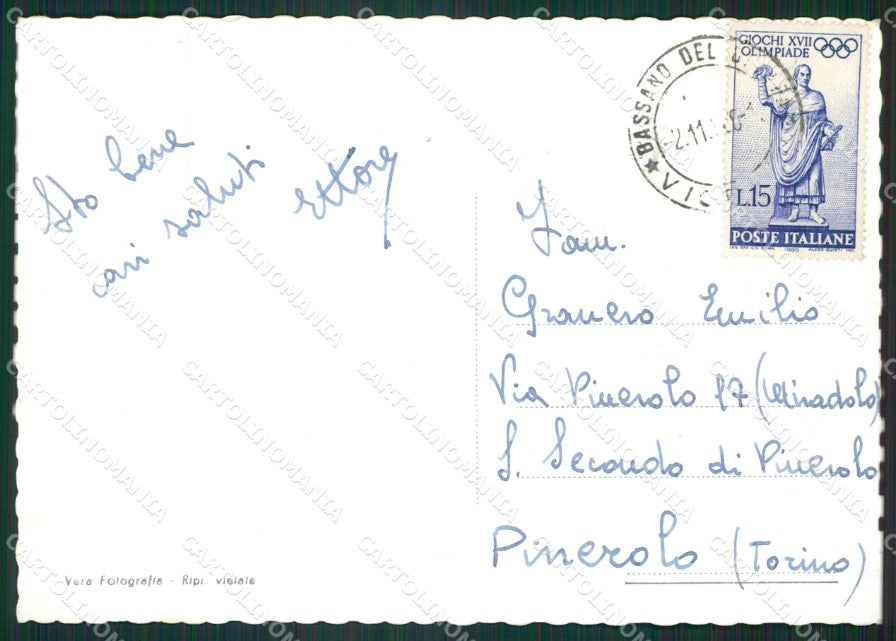 GIOCHI XVII
OLIMPIADE
BASSANO DEL
2.11.
L.15
POSTE ITALIANE
1960
Sto bene
cari saluti
Ettore
Fam.
Granero Emilio
Via Pinerolo 17 (Miradolo)
S. Secondo di Pinerolo
Pinerolo (Torino)
Vera Fotografia - Ripr. vietata
CARTOLINOMANIA